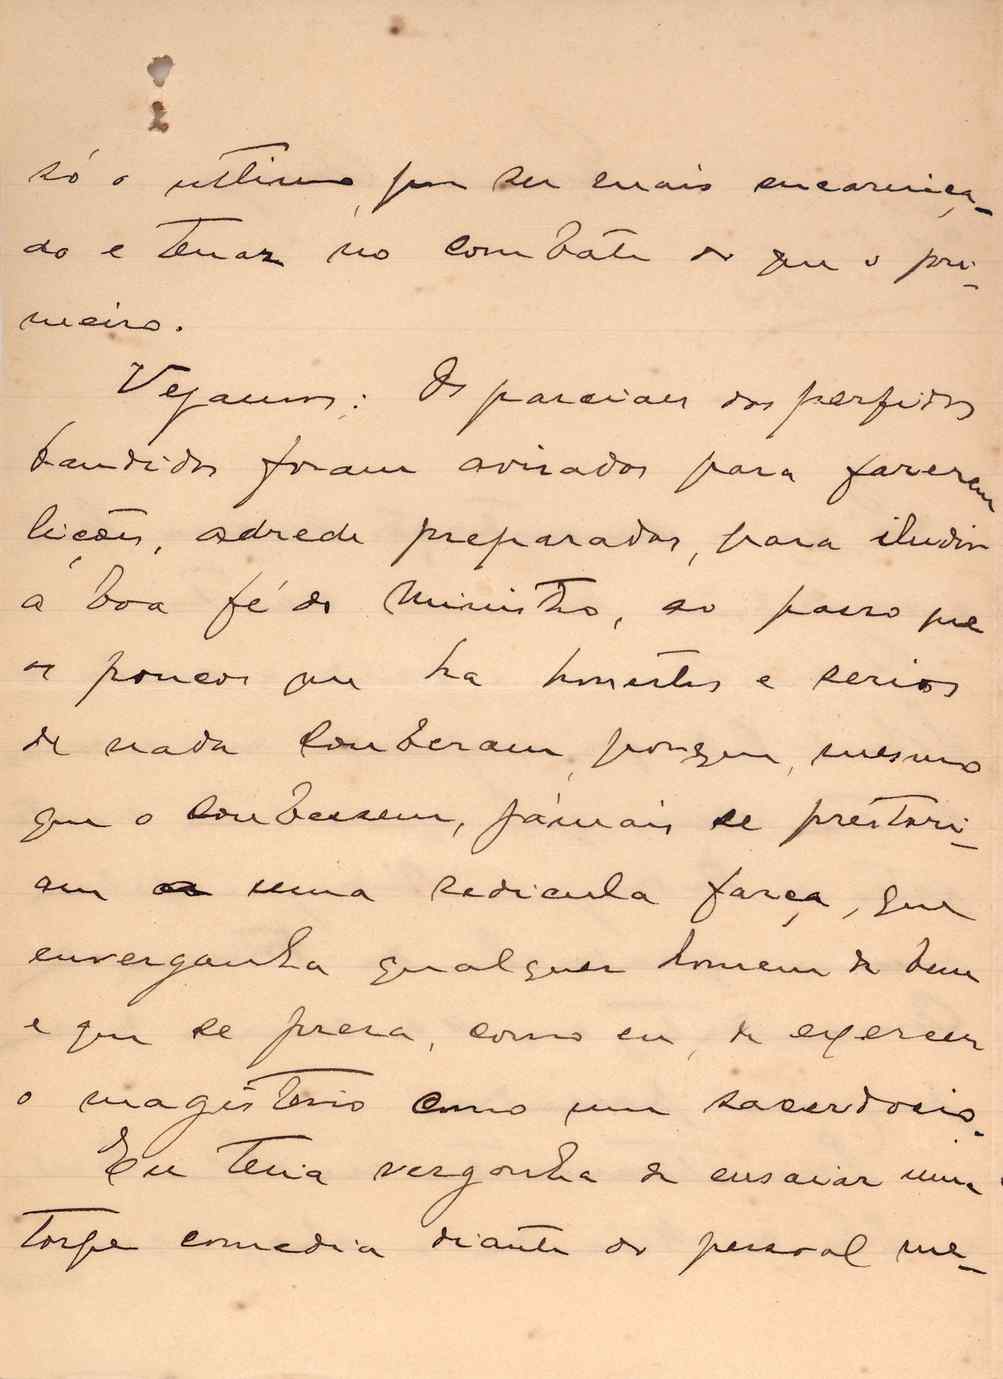 2
só o ultimo, por ser mais encarniça-
do e tenaz no combate do que o pri-
meiro.
Vejamos: Os parciaes dos perfidos
bandidos foram avisados para fazerem
lições, adrede preparadas, para iludir
a boa fé do Ministro, ao passo que
os poucos que ha honestos e serios
de nada souberam, porque, mesmo
que o soubessem, jámais se prestari-
am a uma redicula farça, que
envergonha qualquer homem de bem
e que se presa, como eu, de exercer
o magisterio como um sacerdocio.
Eu teria vergonha de ensaiar uma
torpe comedia diante do pessoal me-